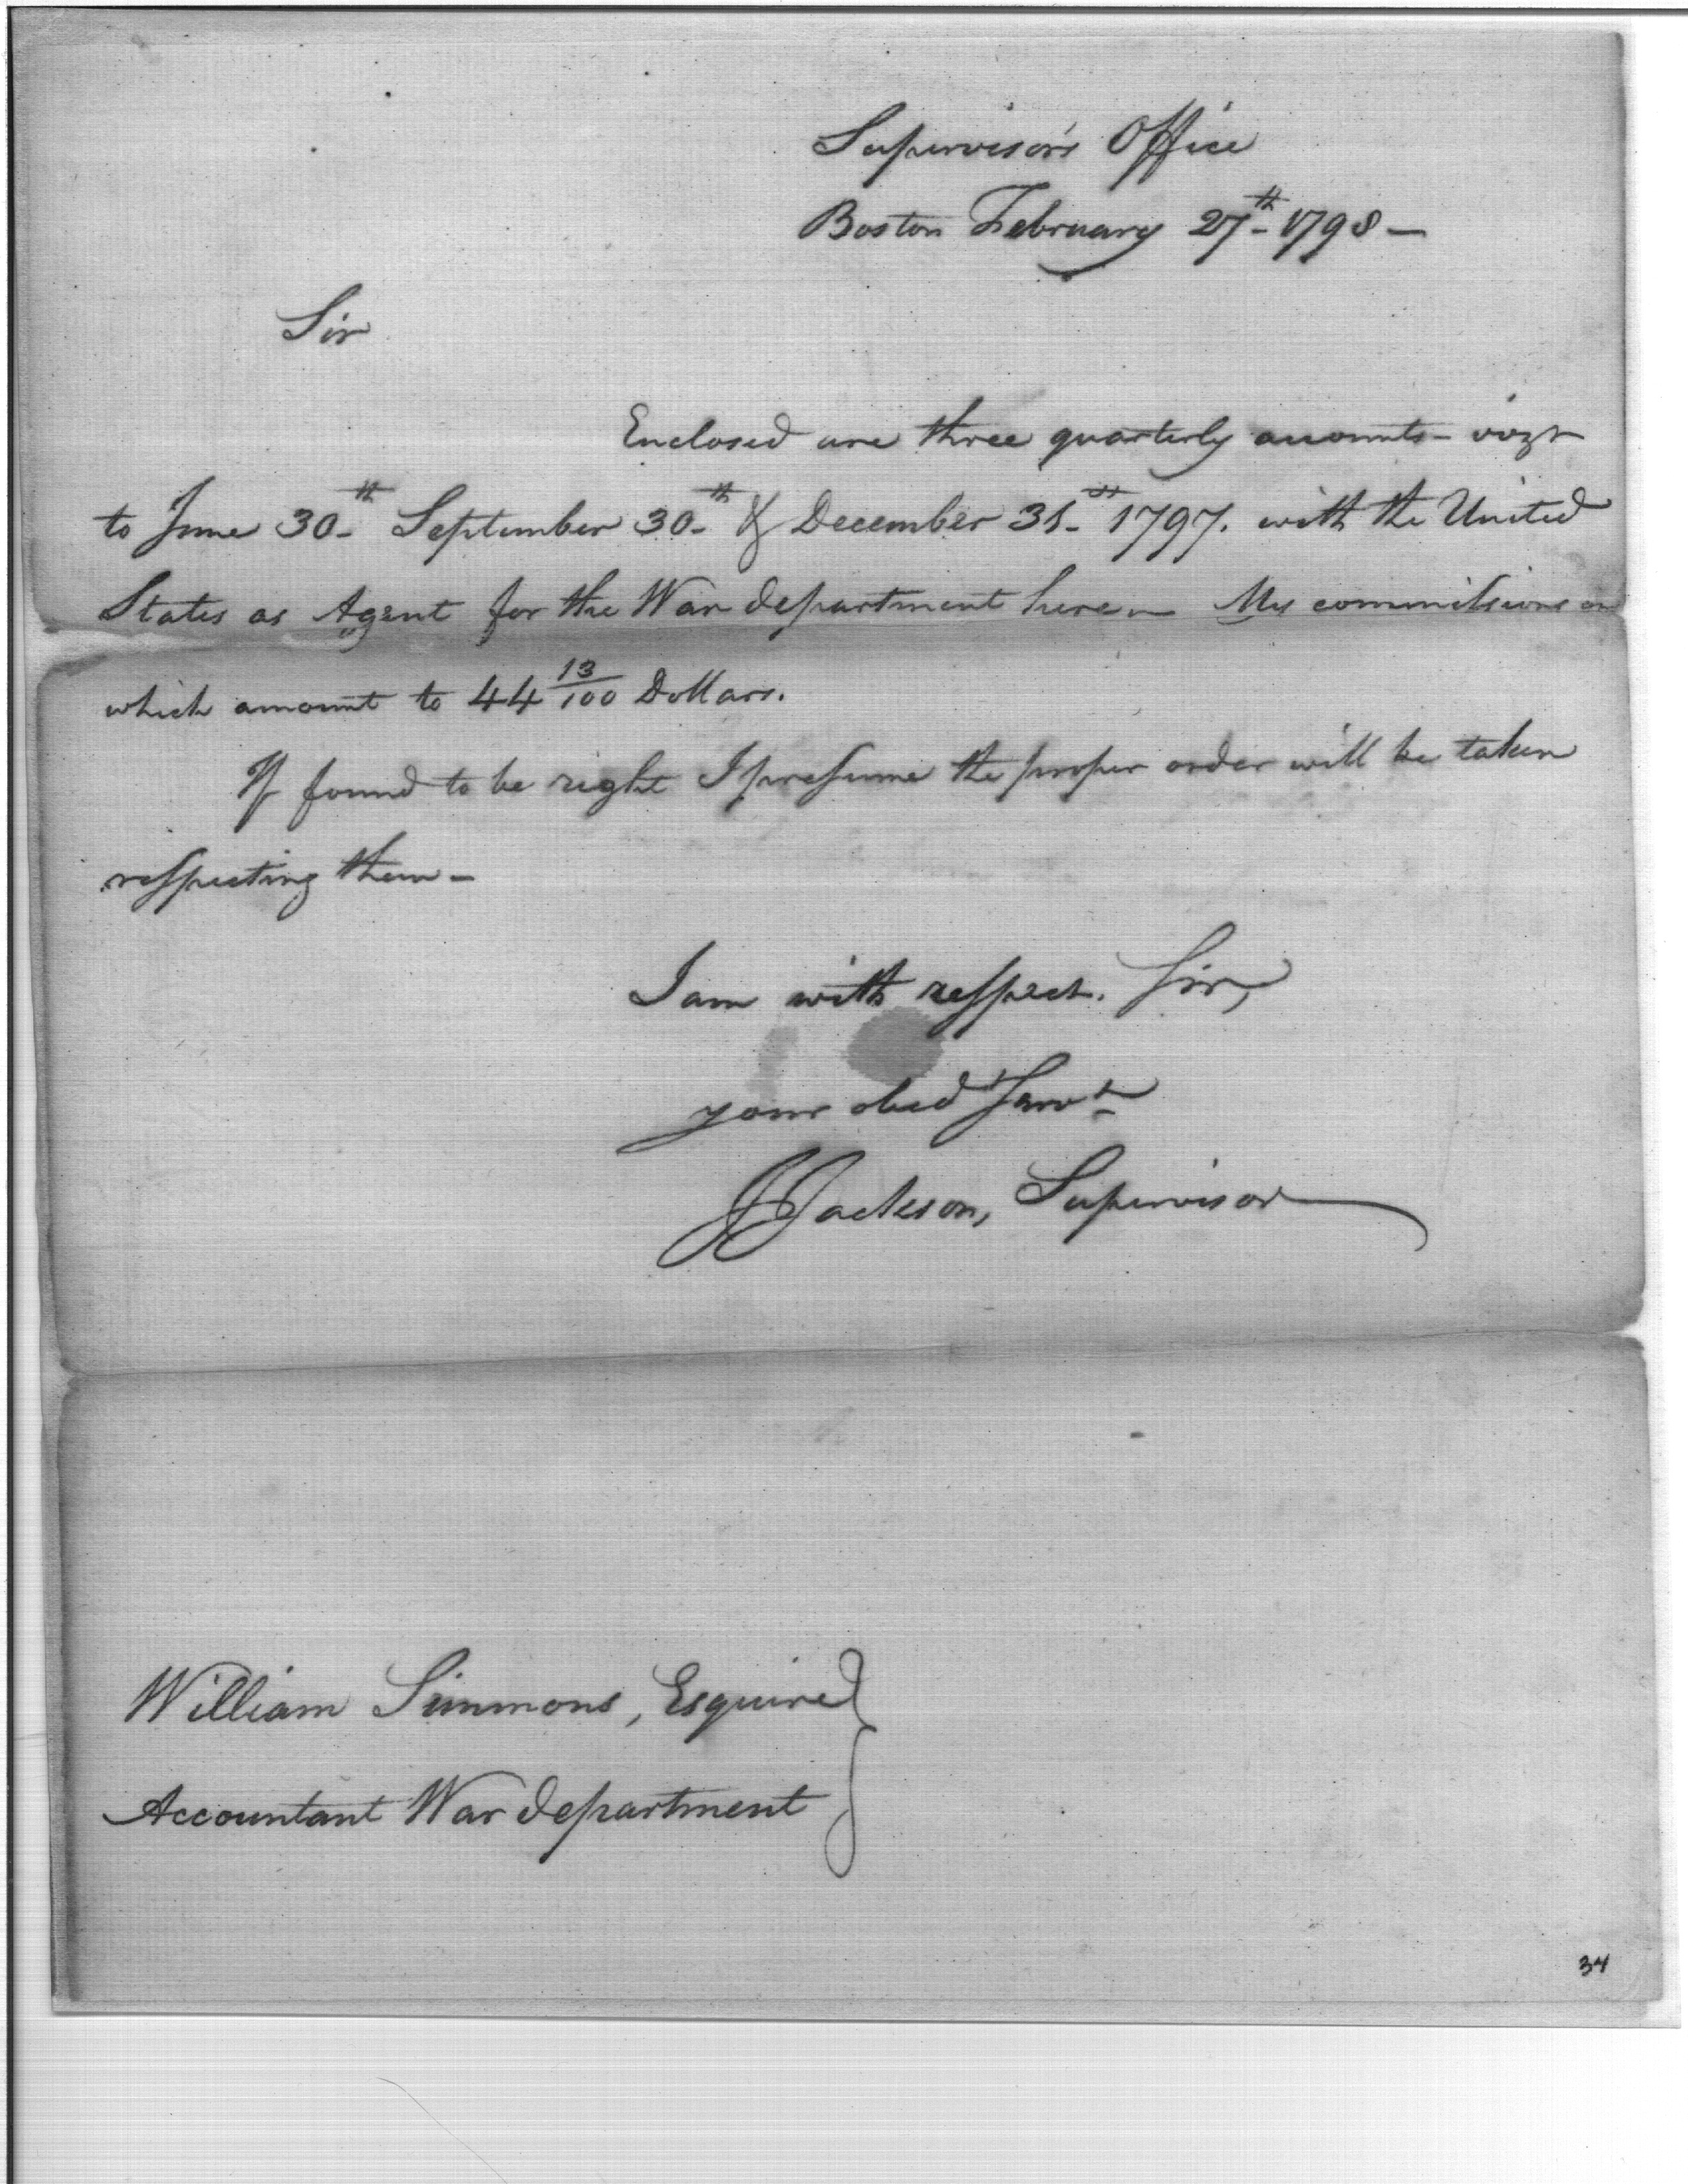 Supervisor's Office
Boston February 27th 1798 —
Sir
Enclosed are three quarterly accounts – vizt
to June 30th September 30th & December 31st 1797. with the United
States as Agent for the War department here – My commissions on
which amount to 44 13/100 Dollars.
If found to be right I presume the proper order will be taken
respecting them –
I am with respect. Sir,
your obed Servt
J Jackson, Supervisor
William Simmons, Esquire
Accountant War department
34